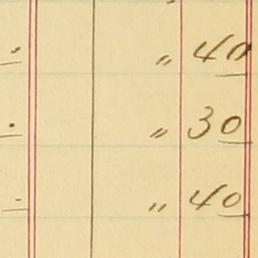 " 40
" 30
" 40